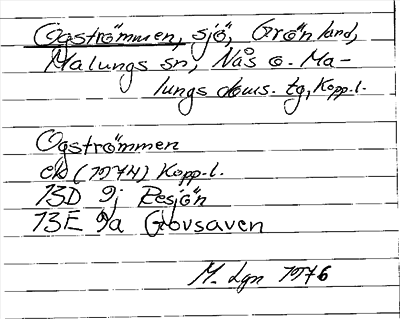 Ogströmmen, sjö, Grönland,
Malungs sn, Nås o. Ma-
lungs doms. tg, Kopp. l.
Ogströmmen
ek (1974) Kopp. l.
13D 9j Resjön
13E 9a Grovsaven
M. Lgn 1976